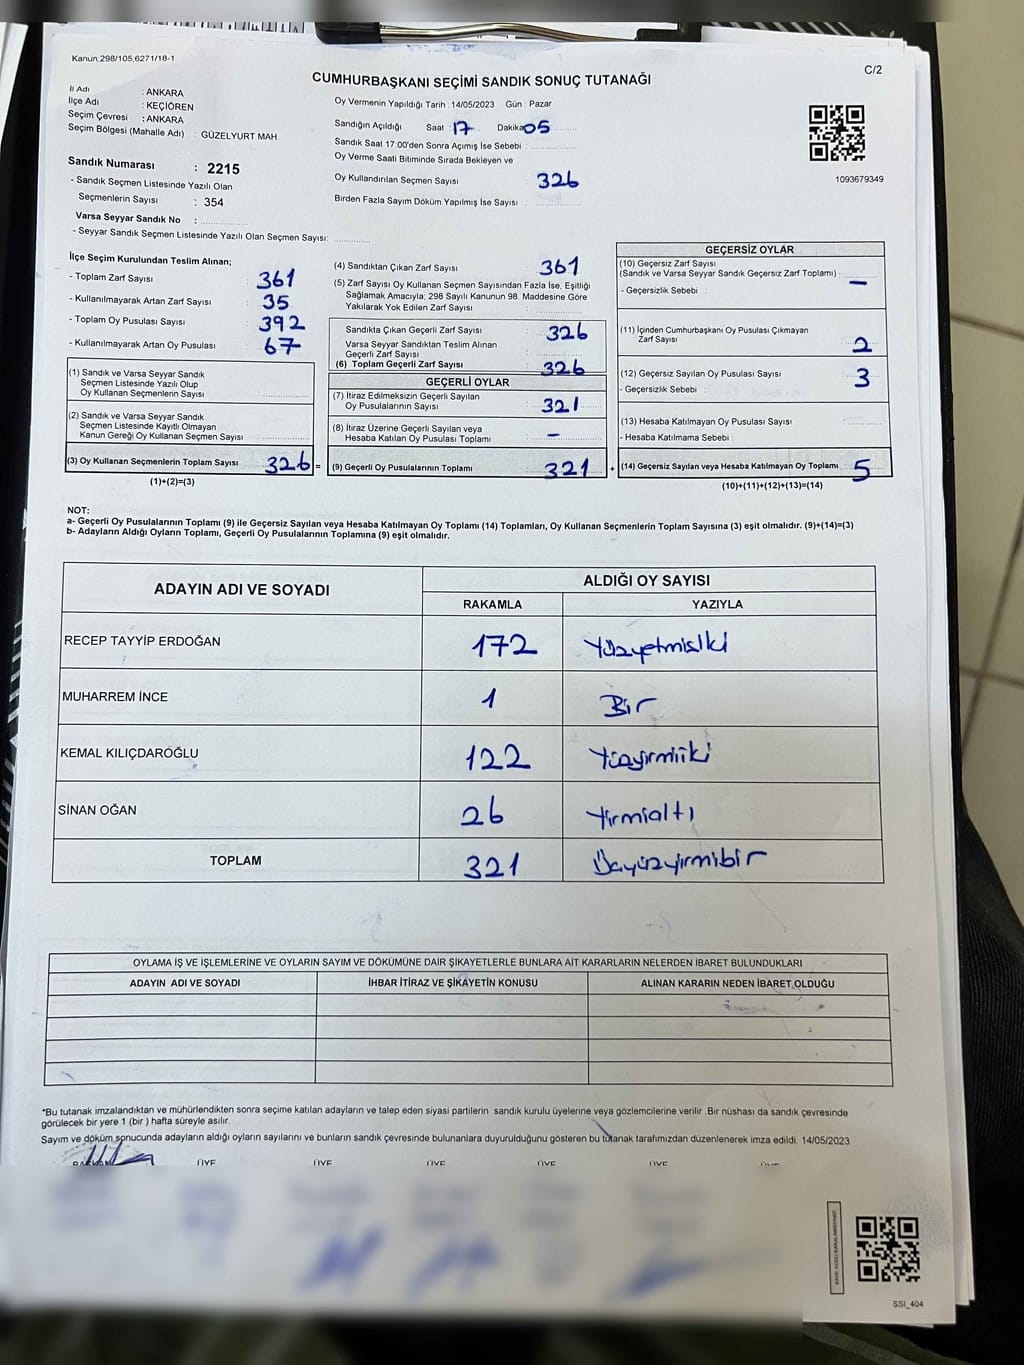 Kanun,298/105,6271/18-1
C/2
CUMHURBAŞKANI SEÇİMİ SANDIK SONUÇ TUTANAĞI
İl Adı : ANKARA
İlçe Adı : KEÇİÖREN
Seçim Çevresi : ANKARA
Seçim Bölgesi (Mahalle Adı) : GÜZELYURT MAH
Sandık Numarası : 2215
- Sandık Seçmen Listesinde Yazılı Olan
Seçmenlerin Sayısı : 354
Varsa Seyyar Sandık No :
- Seyyar Sandık Seçmen Listesinde Yazılı Olan Seçmen Sayısı:
Oy Vermenin Yapıldığı Tarih : 14/05/2023 Gün : Pazar
Sandığın Açıldığı Saat : 17 Dakika 05
Sandık Saat 17:00'den Sonra Açımış İse Sebebi :
Oy Verme Saati Bitiminde Sırada Bekleyen ve
Oy Kullandırılan Seçmen Sayısı : 326
Birden Fazla Sayım Döküm Yapılmış İse Sayısı :
1093679349
İlçe Seçim Kurulundan Teslim Alınan;
- Toplam Zarf Sayısı : 361
- Kullanılmayarak Artan Zarf Sayısı : 35
- Toplam Oy Pusulası Sayısı : 392
- Kullanılmayarak Artan Oy Pusulası : 67
(1) Sandık ve Varsa Seyyar Sandık
Seçmen Listesinde Yazılı Olup
Oy Kullanan Seçmenlerin Sayısı :
(2) Sandık ve Varsa Seyyar Sandık
Seçmen Listesinde Kayıtlı Olmayan
Kanun Gereği Oy Kullanan Seçmen Sayısı :
(3) Oy Kullanan Seçmenlerin Toplam Sayısı : 326 =
(1)+(2)=(3)
(4) Sandıktan Çıkan Zarf Sayısı : 361
(5) Zarf Sayısı Oy Kullanan Seçmen Sayısından Fazla İse, Eşitliği
Sağlamak Amacıyla, 298 Sayılı Kanunun 98. Maddesine Göre
Yakılarak Yok Edilen Zarf Sayısı :
Sandıkta Çıkan Geçerli Zarf Sayısı : 326
Varsa Seyyar Sandıktan Teslim Alınan
Geçerli Zarf Sayısı :
(6) Toplam Geçerli Zarf Sayısı : 326
GEÇERLİ OYLAR
(7) İtiraz Edilmeksizin Geçerli Sayılan
Oy Pusulalarının Sayısı : 321
(8) İtiraz Üzerine Geçerli Sayılan veya
Hesaba Katılan Oy Pusulası Toplamı : –
(9) Geçerli Oy Pusulalarının Toplamı : 321 +
GEÇERSİZ OYLAR
(10) Geçersiz Zarf Sayısı
(Sandık ve Varsa Seyyar Sandık Geçersiz Zarf Toplamı) : –
- Geçersizlik Sebebi :
(11) İçinden Cumhurbaşkanı Oy Pusulası Çıkmayan
Zarf Sayısı : 2
(12) Geçersiz Sayılan Oy Pusulası Sayısı : 3
- Geçersizlik Sebebi :
(13) Hesaba Katılmayan Oy Pusulası Sayısı :
- Hesaba Katılmama Sebebi :
(14) Geçersiz Sayılan veya Hesaba Katılmayan Oy Toplamı : 5
(10)+(11)+(12)+(13)=(14)
NOT:
a- Geçerli Oy Pusulalarının Toplamı (9) ile Geçersiz Sayılan veya Hesaba Katılmayan Oy Toplamı (14) Toplamları, Oy Kullanan Seçmenlerin Toplam Sayısına (3) eşit olmalıdır. (9)+(14)=(3)
b- Adayların Aldığı Oyların Toplamı, Geçerli Oy Pusulalarının Toplamına (9) eşit olmalıdır.
ADAYIN ADI VE SOYADI ALDIĞI OY SAYISI
RAKAMLA YAZIYLA
RECEP TAYYİP ERDOĞAN 172 Yüzyetmişiki
MUHARREM İNCE 1 Bir
KEMAL KILIÇDAROĞLU 122 Yüzyirmiiki
SİNAN OĞAN 26 Yirmialtı
TOPLAM 321 Üçyüzyirmibir
OYLAMA İŞ VE İŞLEMLERİNE VE OYLARIN SAYIM VE DÖKÜMÜNE DAİR ŞİKAYETLERLE BUNLARA AİT KARARLARIN NELERDEN İBARET BULUNDUKLARI
ADAYIN ADI VE SOYADI İHBAR İTİRAZ VE ŞİKAYETİN KONUSU ALINAN KARARIN NEDEN İBARET OLDUĞU
*Bu tutanak imzalandıktan ve mühürlendikten sonra seçime katılan adayların ve talep eden siyasi partilerin sandık kurulu üyelerine veya gözlemcilerine verilir .Bir nüshası da sandık çevresinde
görülecek bir yere 1 (bir ) hafta süreyle asılır.
Sayım ve döküm sonucunda adayların aldığı oyların sayılarını ve bunların sandık çevresinde bulunanlara duyurulduğunu gösteren bu tutanak tarafımızdan düzenlenerek imza edildi. 14/05/2023
BAŞKAN ÜYE ÜYE ÜYE ÜYE ÜYE ÜYE
SSI_404